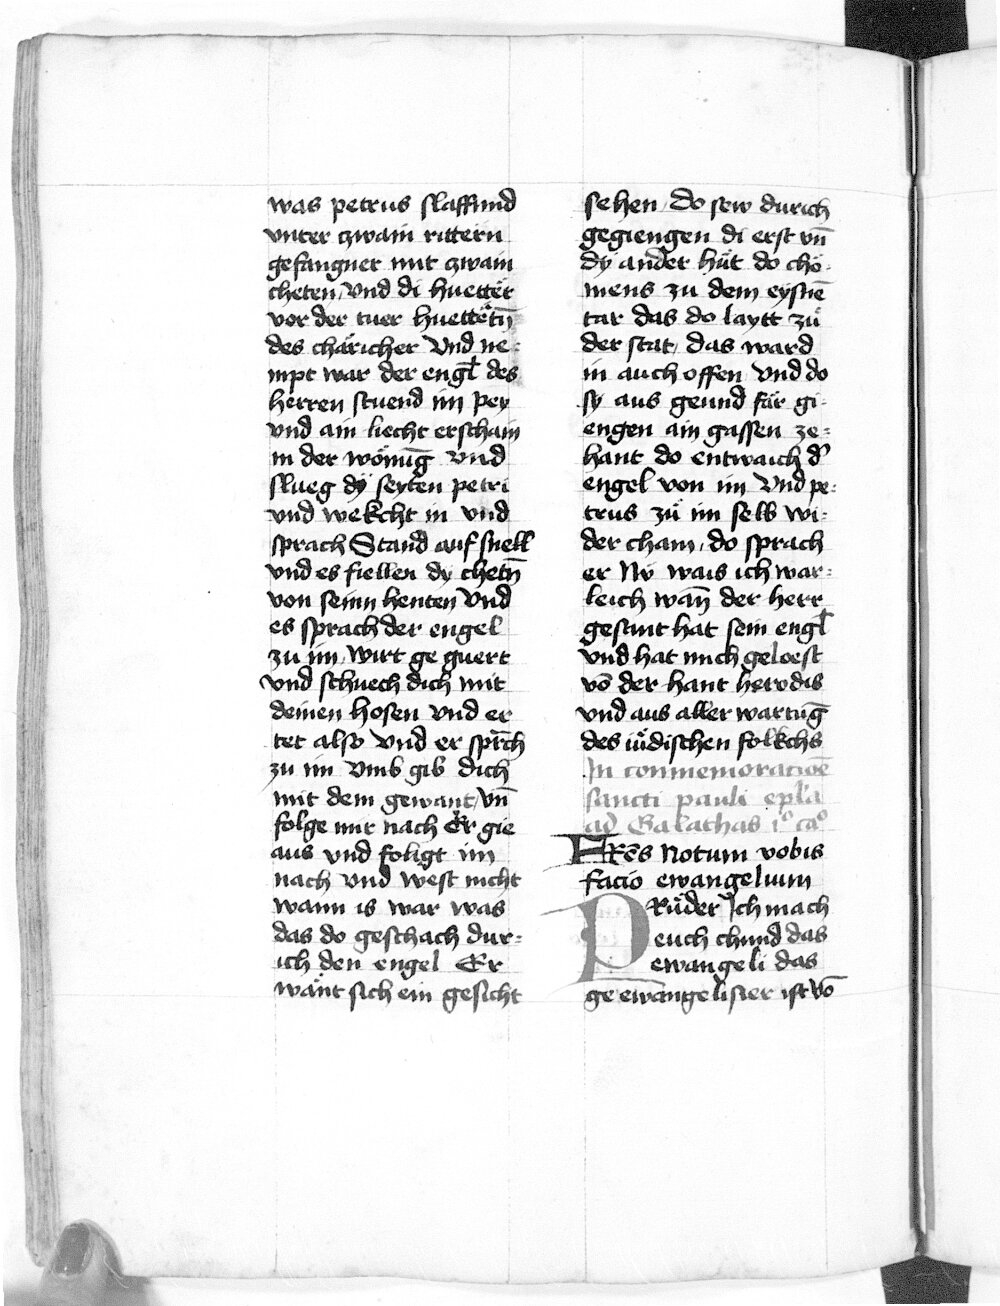 was petrus slaffund
vnter zwain rittern
gefangner mit zwain
cheten, vnd di huettër
vor der tuer huettëtn̄
des chäricher Vnd ne-
mpt war der engl̄ des
herren stuend im pey
vnd ain liecht erschain
in der wönūg vnd
slueg dÿ seyten petri
vnd wekcht in vnd
sprach Stand auf snell
vnd es fiellen dy chetn̄
von seinn henten Vnd
es sprach der engel
zu im, Wirt ge guert
vnd schuech dich mit
deinen hosen vnd er
tet also Vnd er spr̄ch
zu im Vmb gib dich
mit dem gewant, vn̄
folge mir nach Er gie
aus vnd foligt im
nach vnd west nicht
wann is war was
das do geschach dur-
ich den engel Er
wänt sich ein gesicht
sehen, Do sew durich
gegiengen di erst vn̄
dy ander hüt do chö-
mens zu dem eysnē
tar das do laytt zů
der stat, das ward
in auch offen, Vnd do
sy aus geund für gi-
engen ain gassen ze-
hant do entwaich d'
engel von im Vnd pe-
trus zů im selb wi-
der cham, do sprach
er Nÿ wais ich war-
leich wan̄ der herr
gesant hat sein engl̄
vnd hat mich geloest
vō der hant herodis
vnd aus aller wartūg
des iüdischen folkchs
In commemoracioē
sancti pauli epl̄a
ad Galathas i° ca°
FRēs Notum vobis
facio ewangelium
PRüder Ich mach
euch chund das
ewangeli das
geewangelisier ist vō